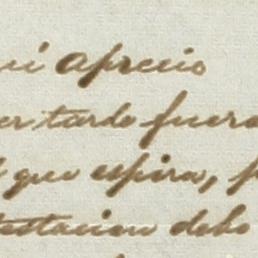 aprecio
er tarde fuera
que espira, p
testacion debo